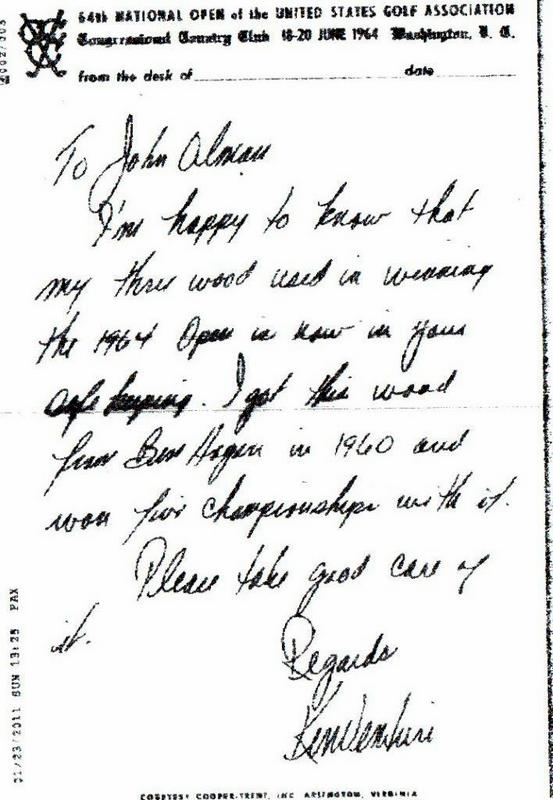 64th NATIONAL OPEN of the UNITED STATES GOLF ASSOCIATION
Congressional Country Club 18-20 JUNE 1964 Washington, D. C.
from the desk of date
To John Alman
I'm happy to know that
my three wood used in winning
the 1964 Open is now in your
safe keeping. I got this wood
from Ben Hogan in 1960 and
won five championships with it.
Please take good care of
it.
Regards
Ken Venturi
COURTESY COOPER-TRENT, INC. ARLINGTON, VIRGINIA
01/23/2011 SUN 13:25 FAX